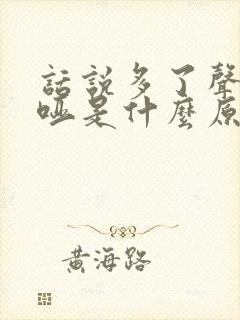 話說多了聲
啞是什麼原
黃海路